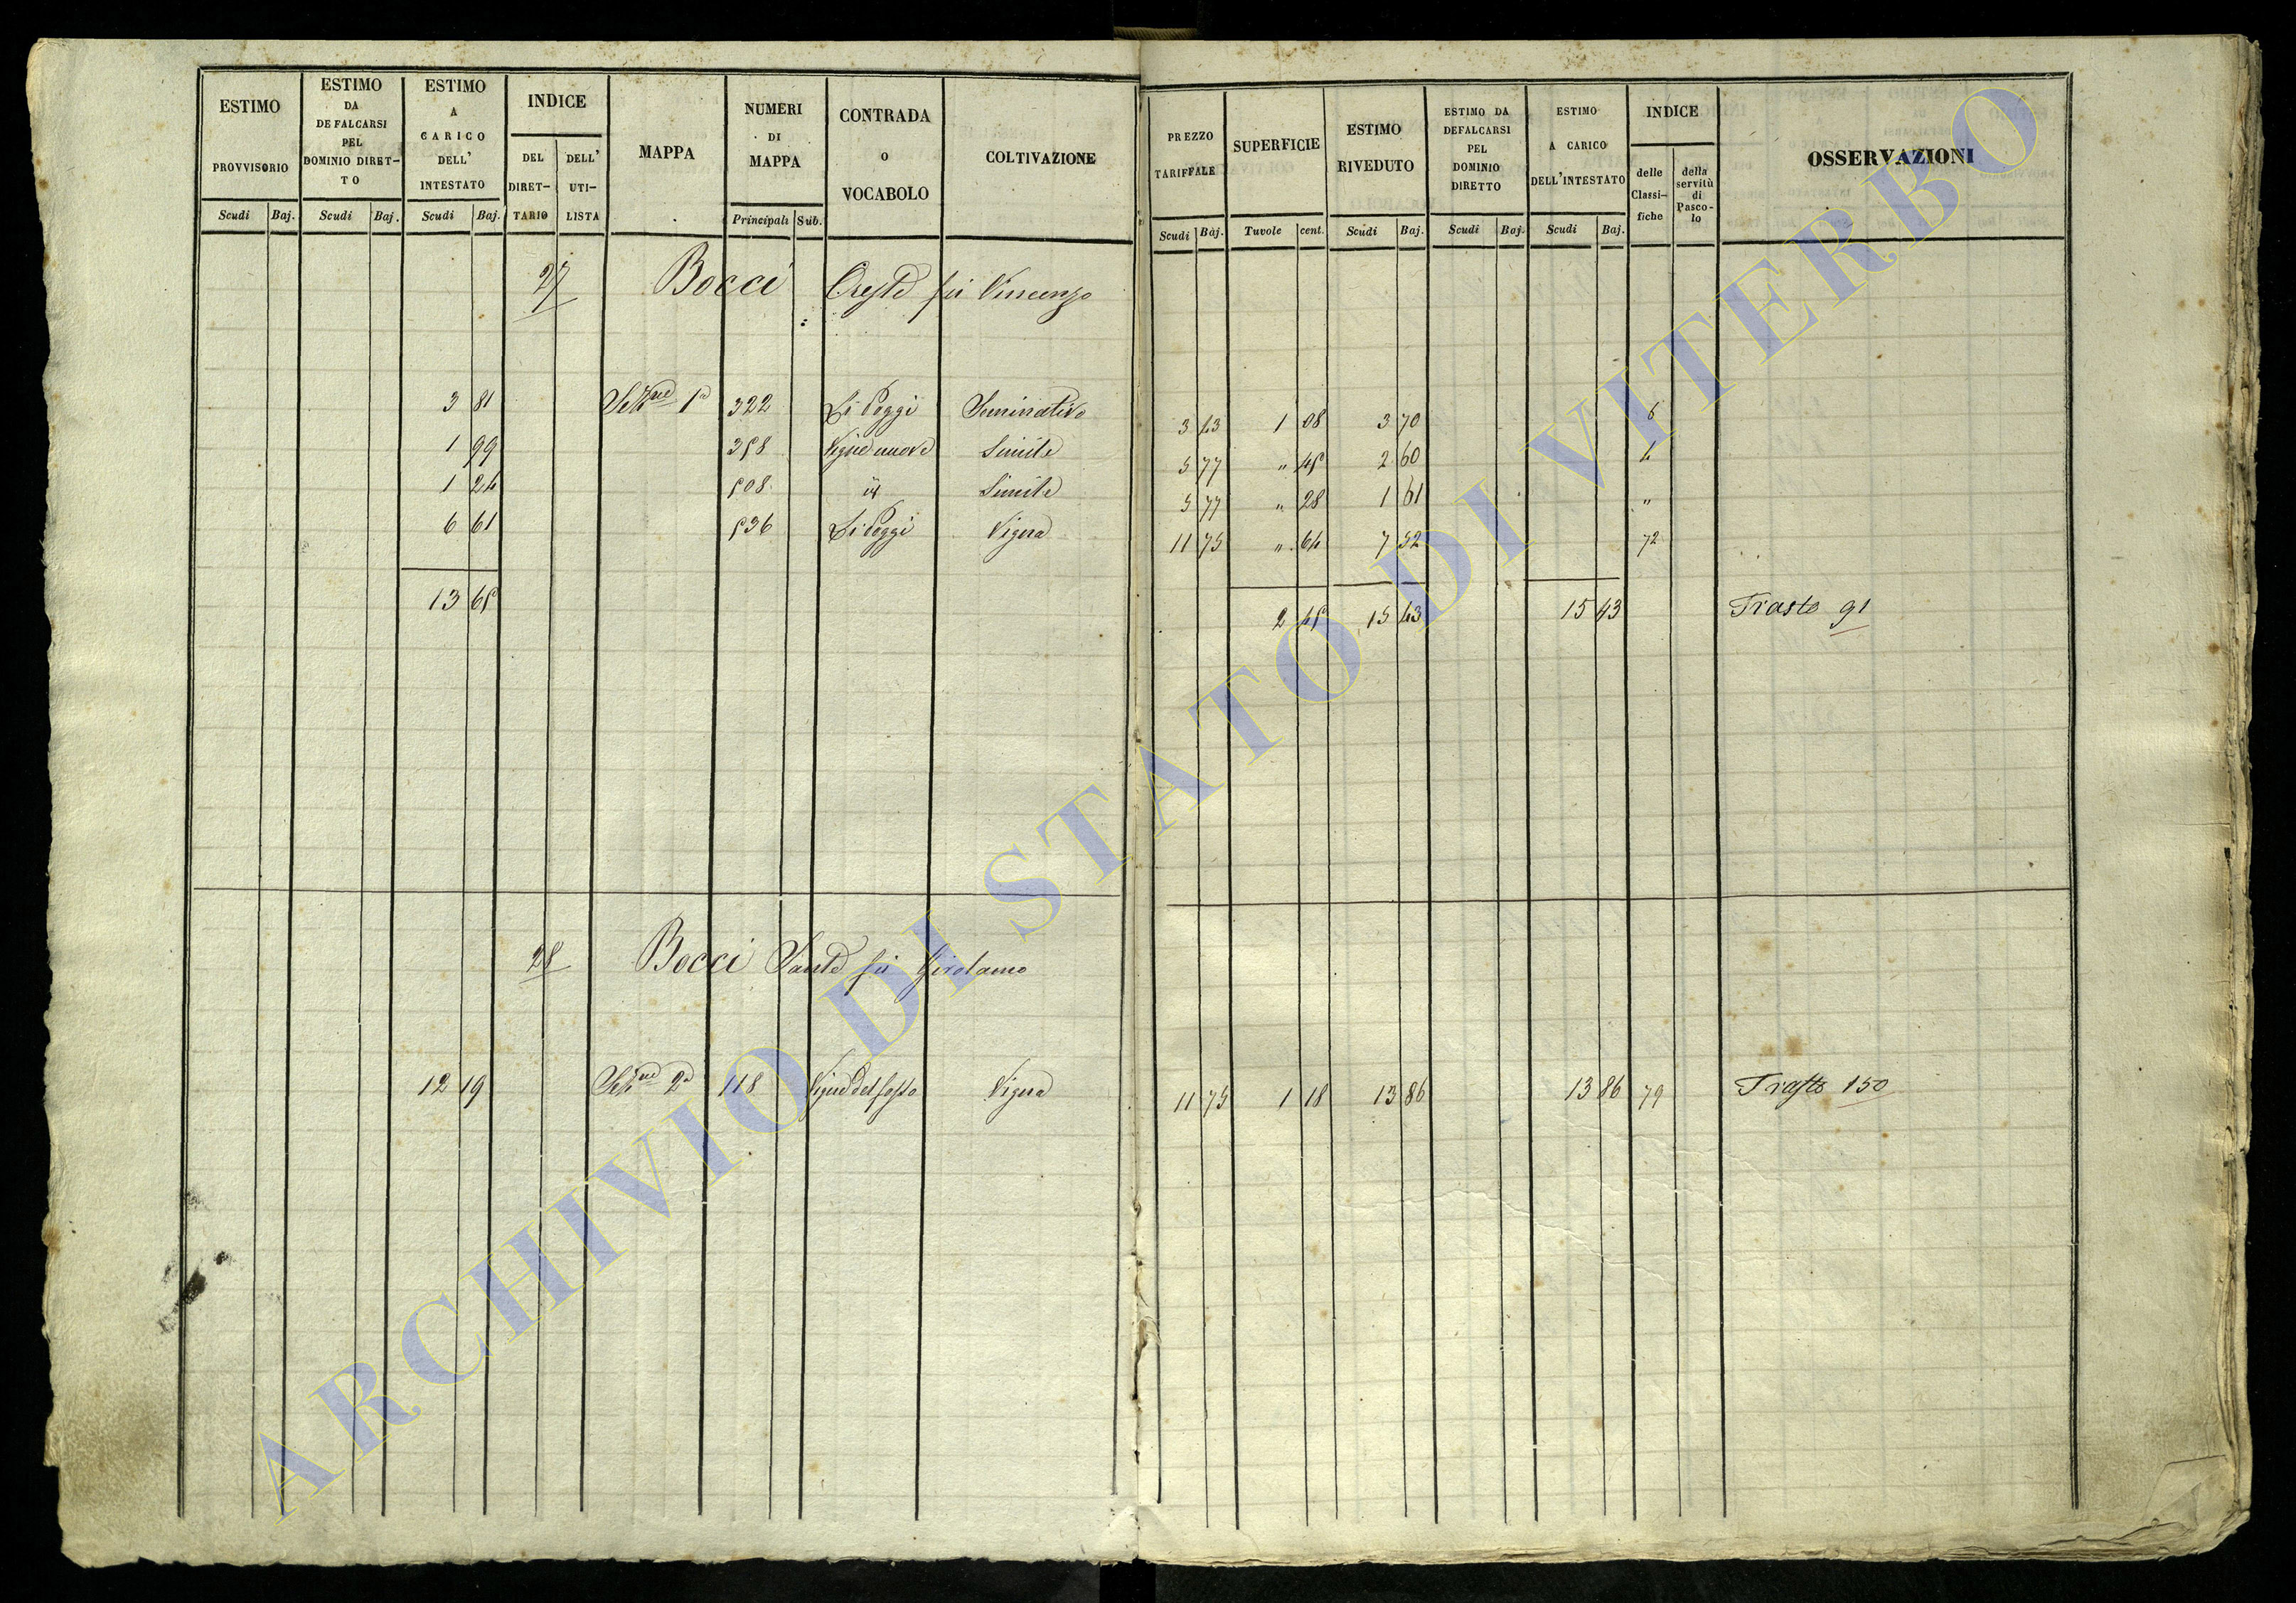 ESTIMO PROVVISORIO | ESTIMO DA DEFALCARSI PEL DOMINIO DIRET-TO | ESTIMO A CARICO DELL' INTESTATO | INDICE DEL DIRET-TARIO | DELL' UTI-LISTA | MAPPA | NUMERI DI MAPPA | CONTRADA O VOCABOLO | COLTIVAZIONE | PREZZO TARIFFALE | SUPERFICIE | ESTIMO RIVEDUTO | ESTIMO DA DEFALCARSI PEL DOMINIO DIRETTO | ESTIMO A CARICO DELL'INTESTATO | INDICE delle Classi-fiche | della servitù di Pasco-lo | OSSERVAZIONI
Scudi | Baj. | Scudi | Baj. | Scudi | Baj. | Principali | Sub. | Scudi | Baj. | Tavole | cent. | Scudi | Baj. | Scudi | Baj. | Scudi | Baj.
27 Bocci Oreste fu Vincenzo
3 81 | Sezne 1a | 322 | Li Poggi | Seminativo | 3 43 | 1 08 | 3 70 | 6
1 99 | 358 | Vigne nuove | Simile | 5 77 | " 45 | 2 60 | 4
1 24 | 508 | id | Simile | 5 77 | " 28 | 1 61 | "
6 61 | 536 | Li Poggi | Vigna | 11 75 | " 64 | 7 52 | 72
13 65 | 2 45 | 15 43 | 15 43 | Trasto 91
28 Bocci Sante fu Girolamo
12 19 | Sezne 2a | 118 | Vigne del fosso | Vigna | 11 75 | 1 18 | 13 86 | 13 86 | 79 | Trasto 150
ARCHIVIO DI STATO DI VITERBO